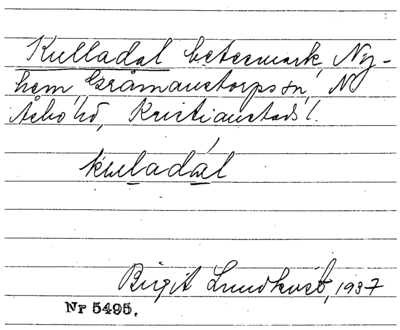 Kulladal betesmark, Ny-
hem, Gråmanstorps sn, N
Åsbo hd, Kristianstads l.
kuladál
Birgit Lundkvist, 1937
Nr 5495.